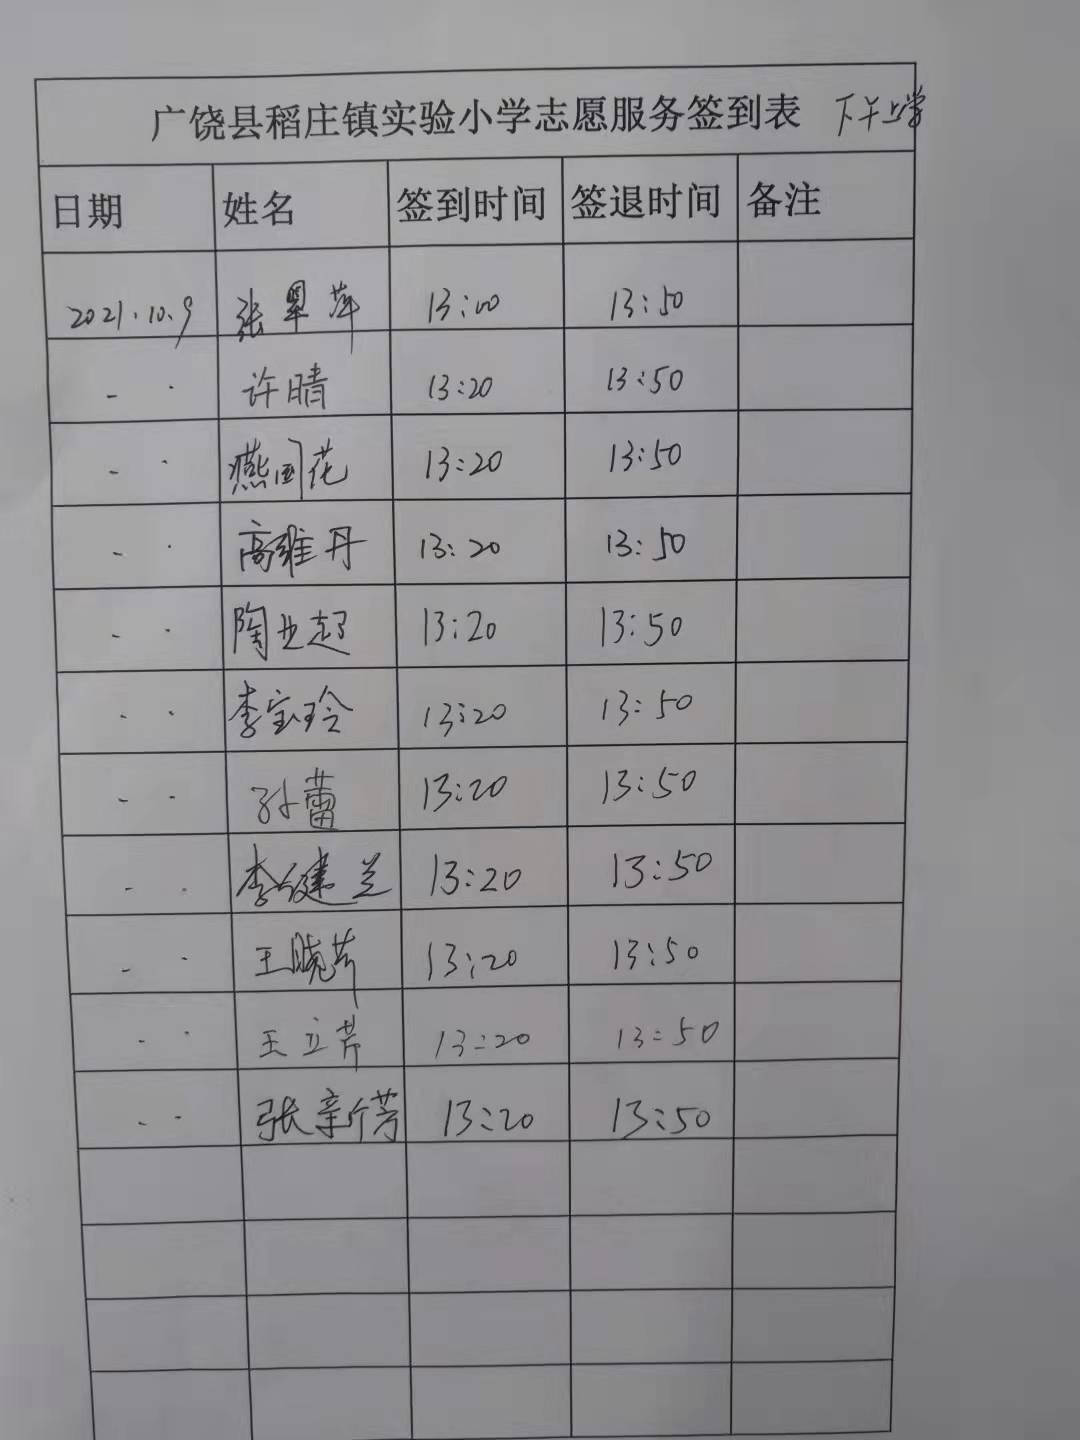 广饶县稻庄镇实验小学志愿服务签到表 下午上学
日期 姓名 签到时间 签退时间 备注
2021.10.9 张翠萍 13:00 13:50
- · 许晴 13:20 13:50
- · 燕国花 13:20 13:50
- · 高维丹 13:20 13:50
- · 陶业超 13:20 13:50
· · 李宝玲 13:20 13:50
- · 孙蕾 13:20 13:50
- · 李健兰 13:20 13:50
- · 王晓芹 13:20 13:50
- · 王立芹 13:20 13:50
- · 张新芳 13:20 13:50